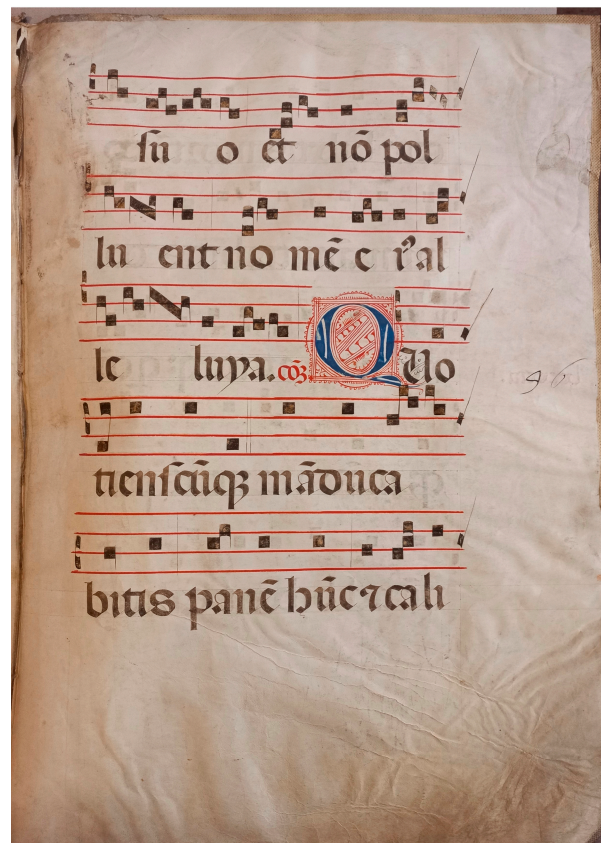 su o et nō pol
lu ent no mē e iͬ al
le luya. cōꝫ Quo
tienscūqꝫ māduca
bitis panē hūc ⁊ cali
96